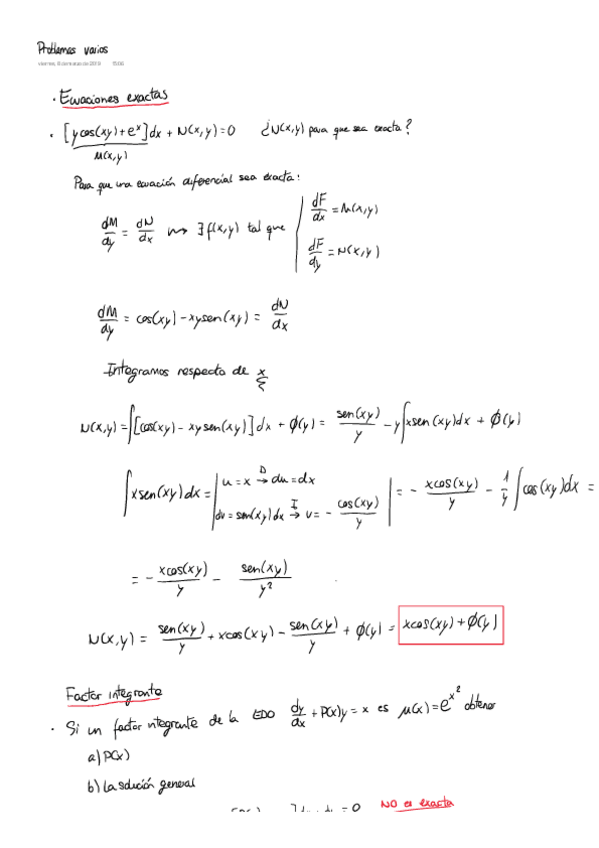 Problemas varios
viernes, 8 de marzo de 2019 11:06
· Ecuaciones exactas
· [y cos(xy)+e^x]dx + N(x,y)=0 ¿N(x,y) para que sea exacta?
M(x,y)
Para que una ecuación diferencial sea exacta:
dM/dy = dN/dx ⇝ ∃ f(x,y) tal que | dF/dx = M(x,y)
dF/dy = N(x,y)
dM/dy = cos(xy) - xy sen(xy) = dN/dx
Integramos respecto de x
N(x,y) = ∫[cos(xy) - xy sen(xy)]dx + φ(y) = sen(xy)/y - y∫x sen(xy)dx + φ(y)
∫x sen(xy)dx = | u = x D→ du = dx
dv = sen(xy)dx I→ v = - cos(xy)/y | = - x cos(xy)/y - 1/y ∫cos(xy)dx =
= - x cos(xy)/y - sen(xy)/y²
N(x,y) = sen(xy)/y + x cos(xy) - sen(xy)/y + φ(y) = x cos(xy) + φ(y)
Factor integrante
· Si un factor integrante de la EDO dy/dx + P(x)y = x es μ(x) = e^x² obtener
a) P(x)
b) La solución general
= 0 NO es exacta